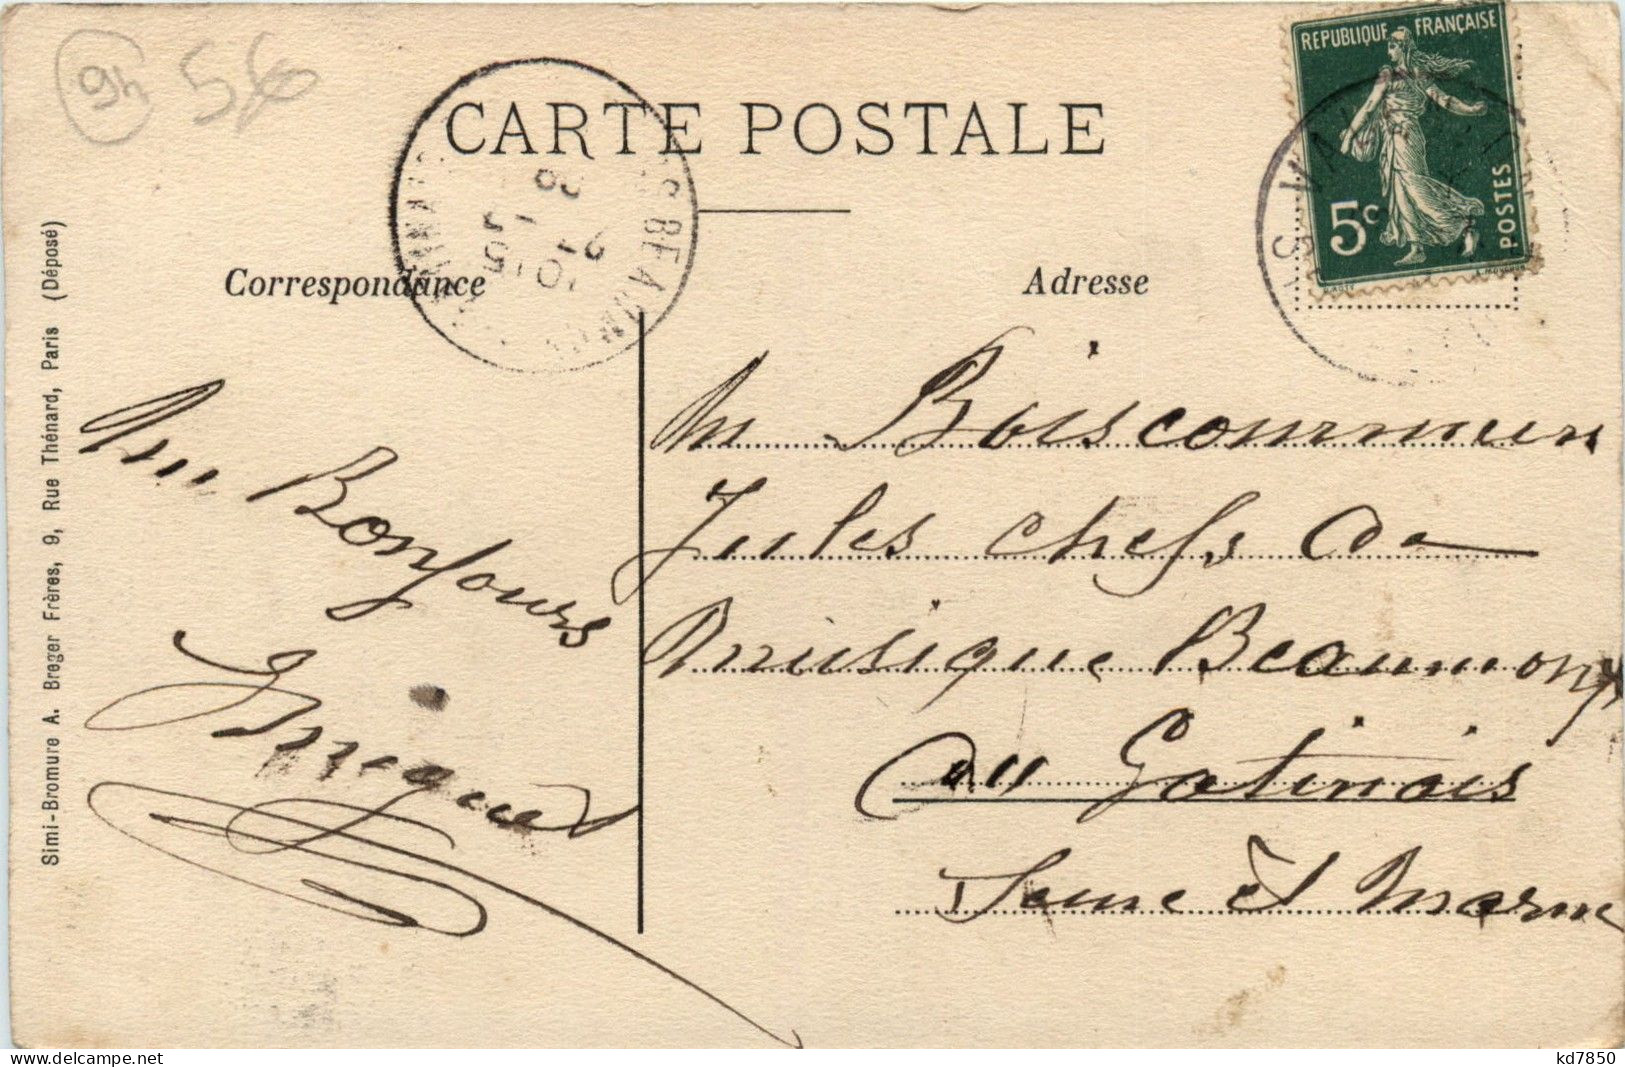 9h 56
CARTE POSTALE
REPUBLIQUE FRANÇAISE
5c
POSTES
Correspondance
Adresse
Simi-Bromure A. Breger Frères, 9, Rue Thénard, Paris (Déposé)
Bonjours
M Boiscourmun
Jules chefs de
Musique Beaumont
du Gatinais
Seine et Marne
kd7850